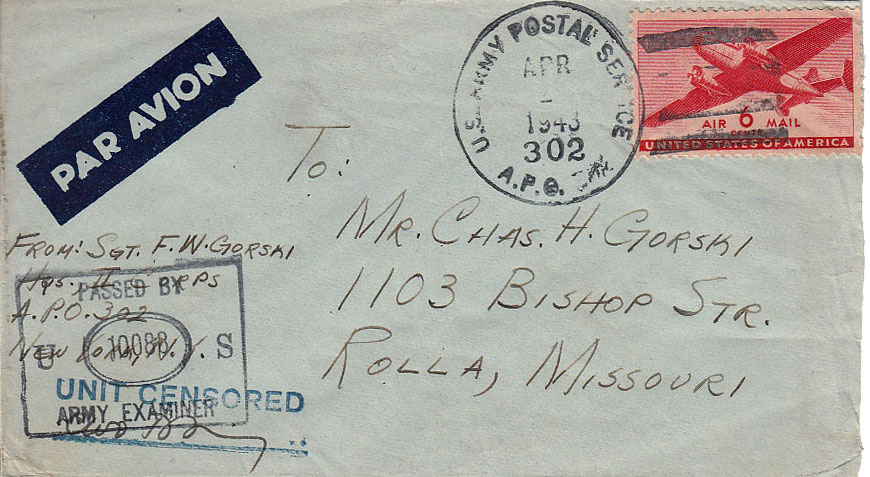 PAR AVION
U.S. ARMY POSTAL SERVICE
APR
1943
302
A.P.O.
AIR 6 MAIL
CENTS
UNITED STATES OF AMERICA
To:
Mr. Chas. H. Gorski
1103 Bishop Str.
Rolla, Missouri
From: Sgt. F. W. Gorski
Hqs. II Corps
A.P.O. 302
New York, N.Y.
PASSED BY
U 10088 S
ARMY EXAMINER
UNIT CENSORED